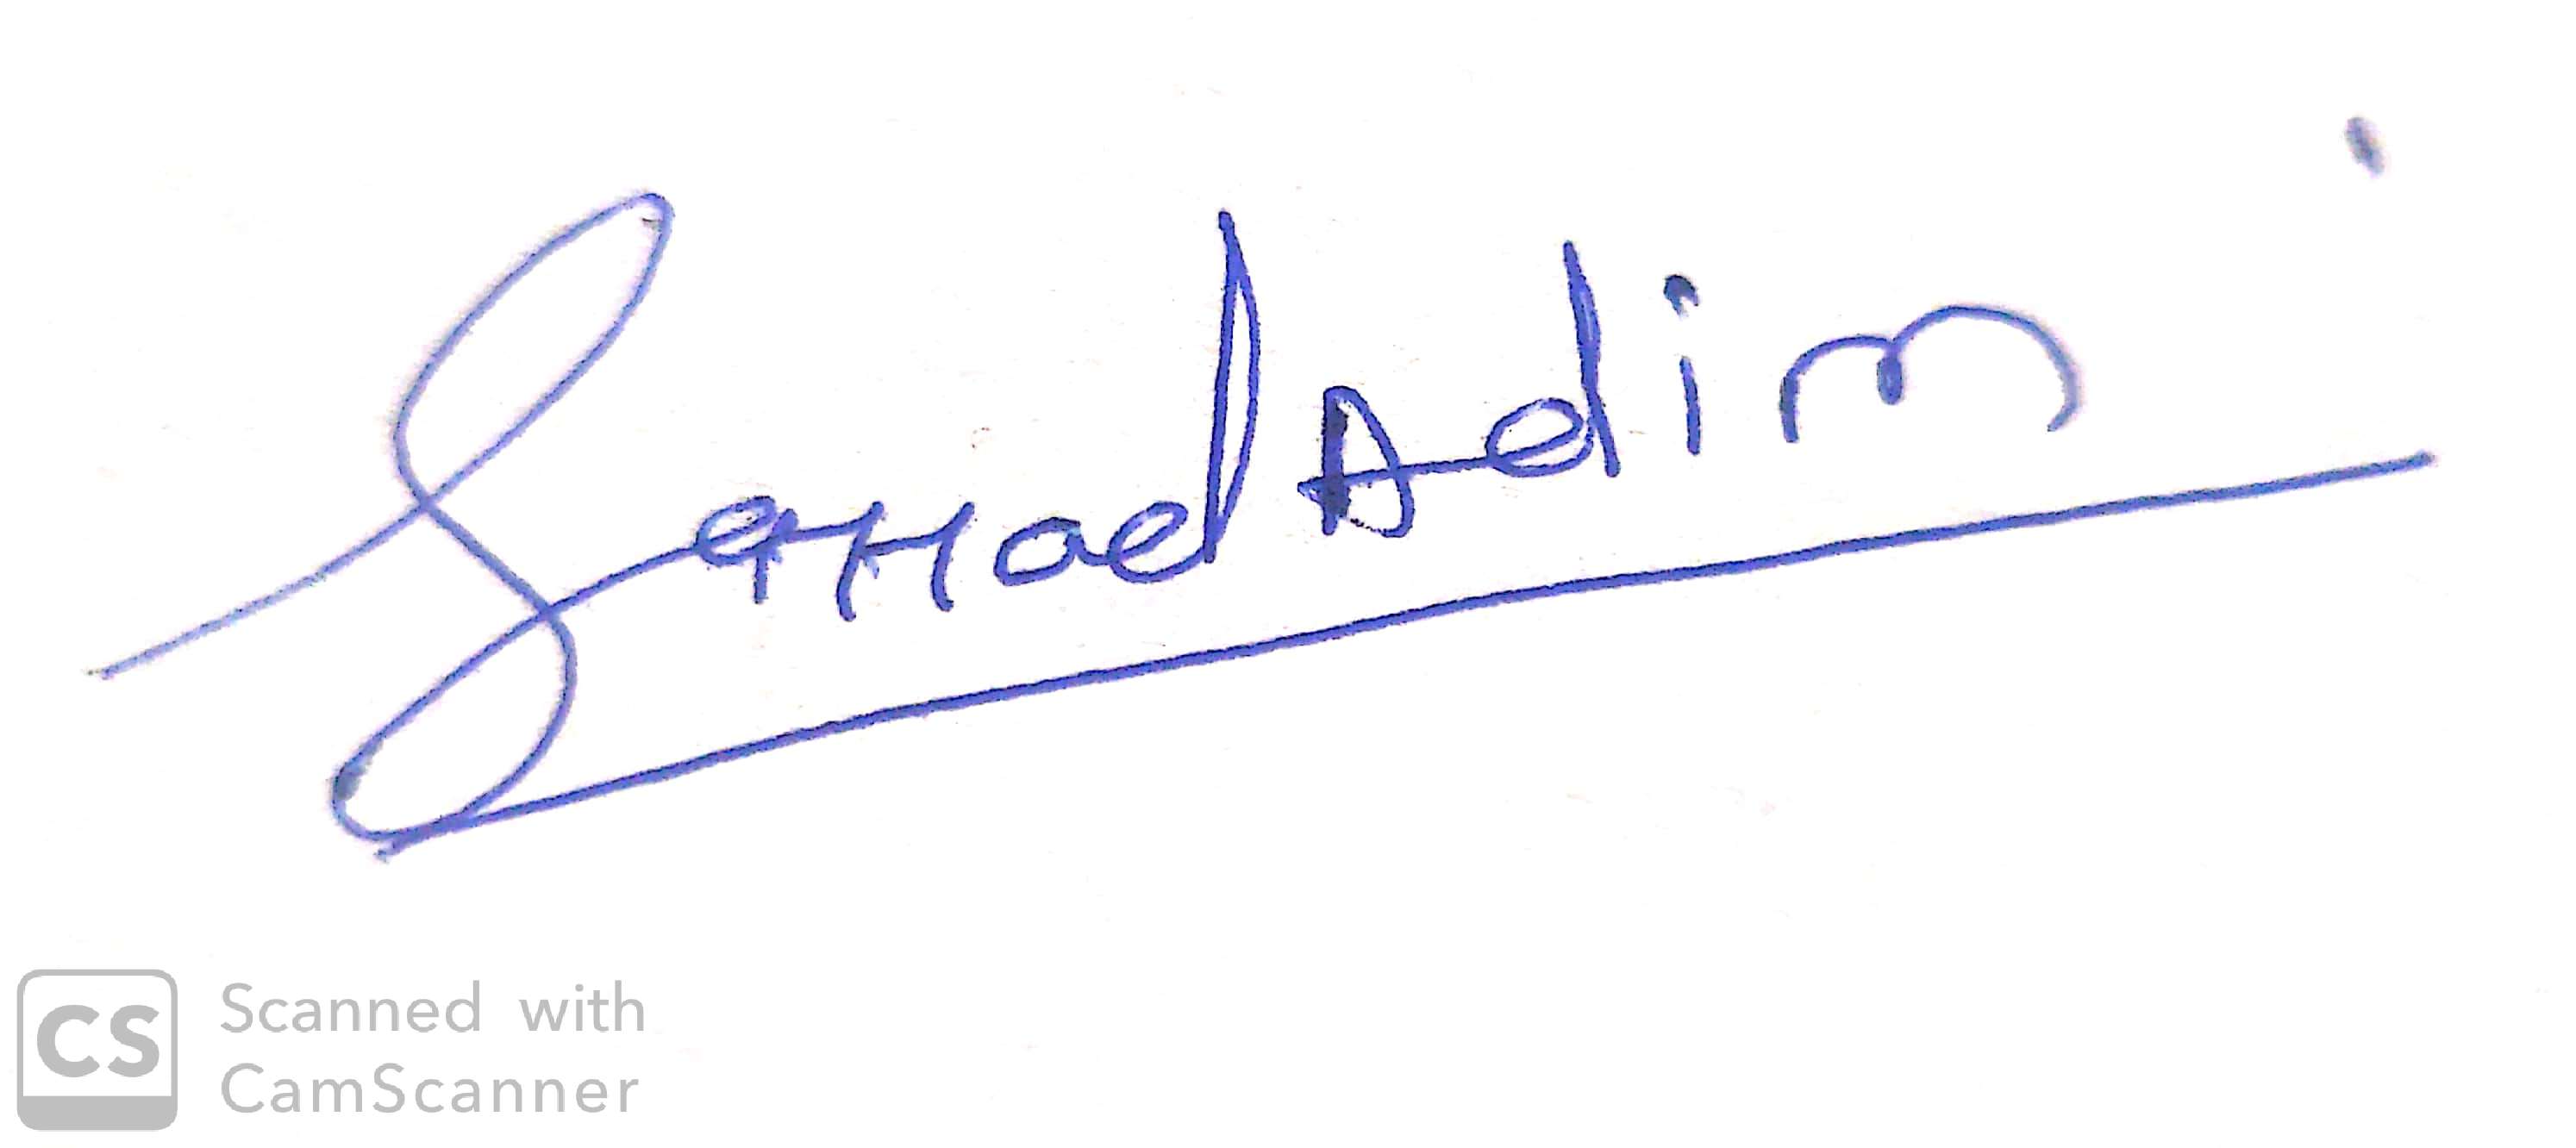 Adim
CS
Scanned with
CamScanner